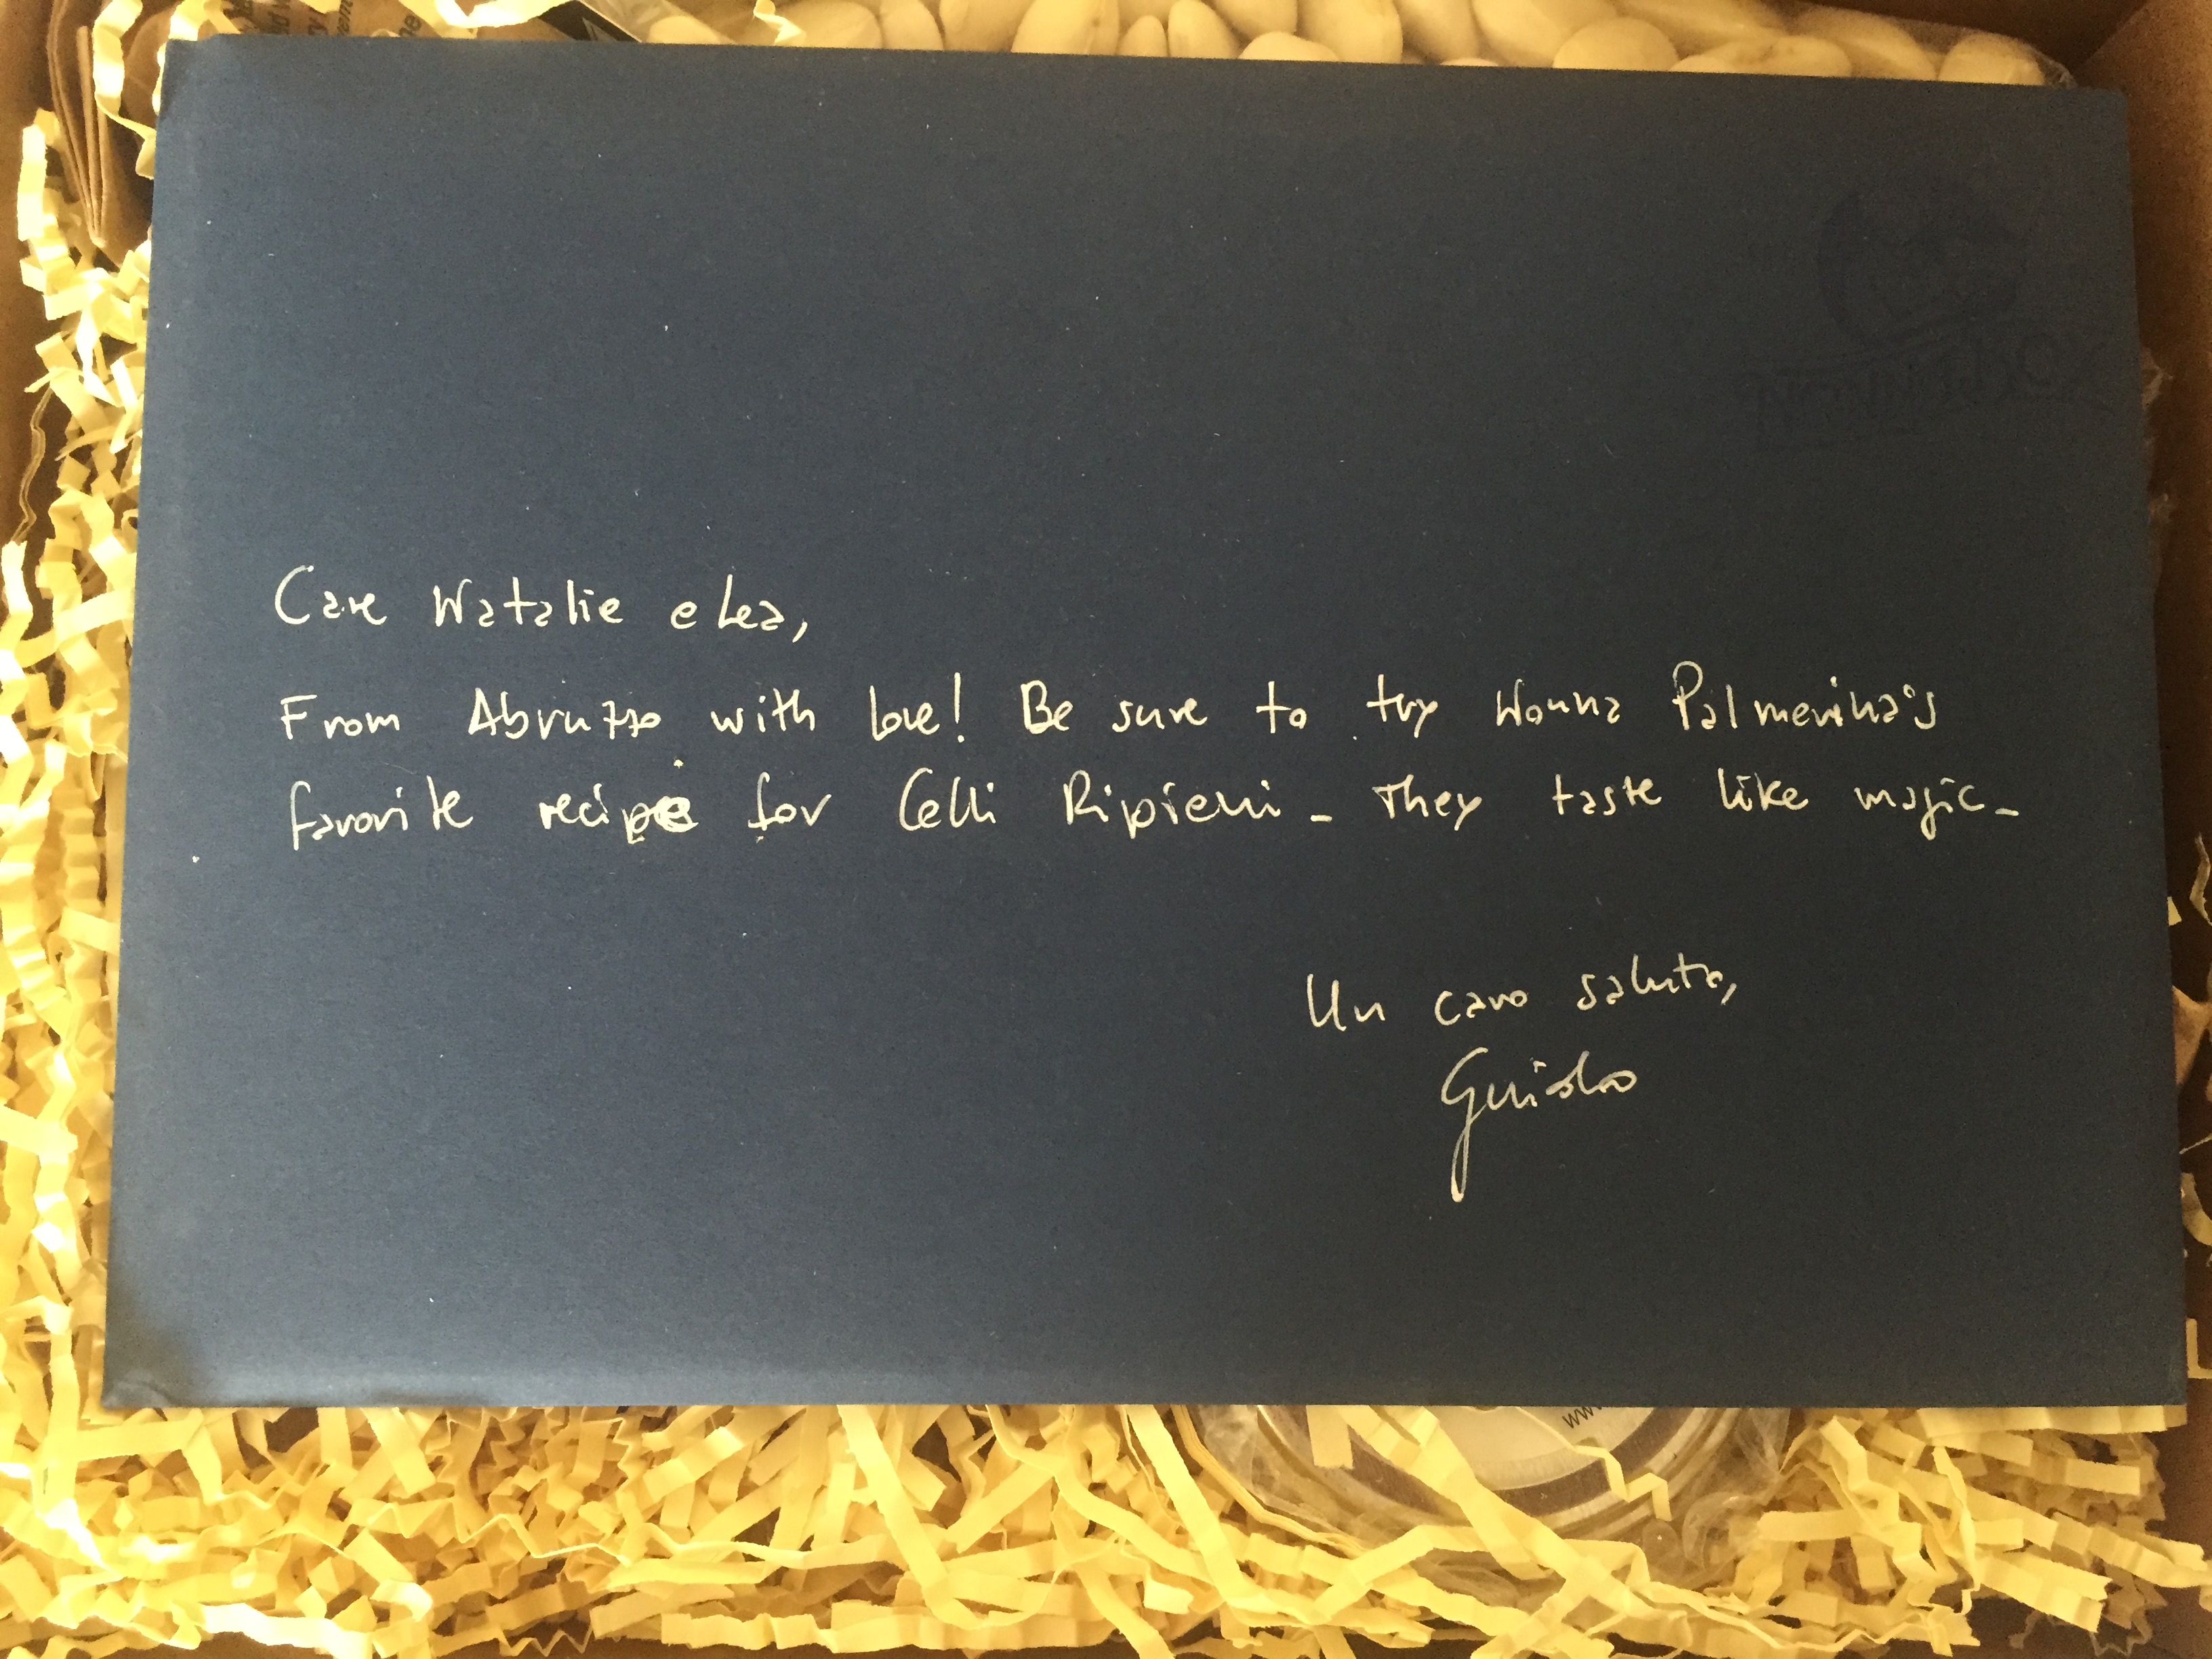 Care Natalie e Lea,
From Abruzzo with love! Be sure to try Nonna Palmerina's
favorite recipe for Celli Ripieni - They taste like magic -
Un caro saluto,
Guido
www